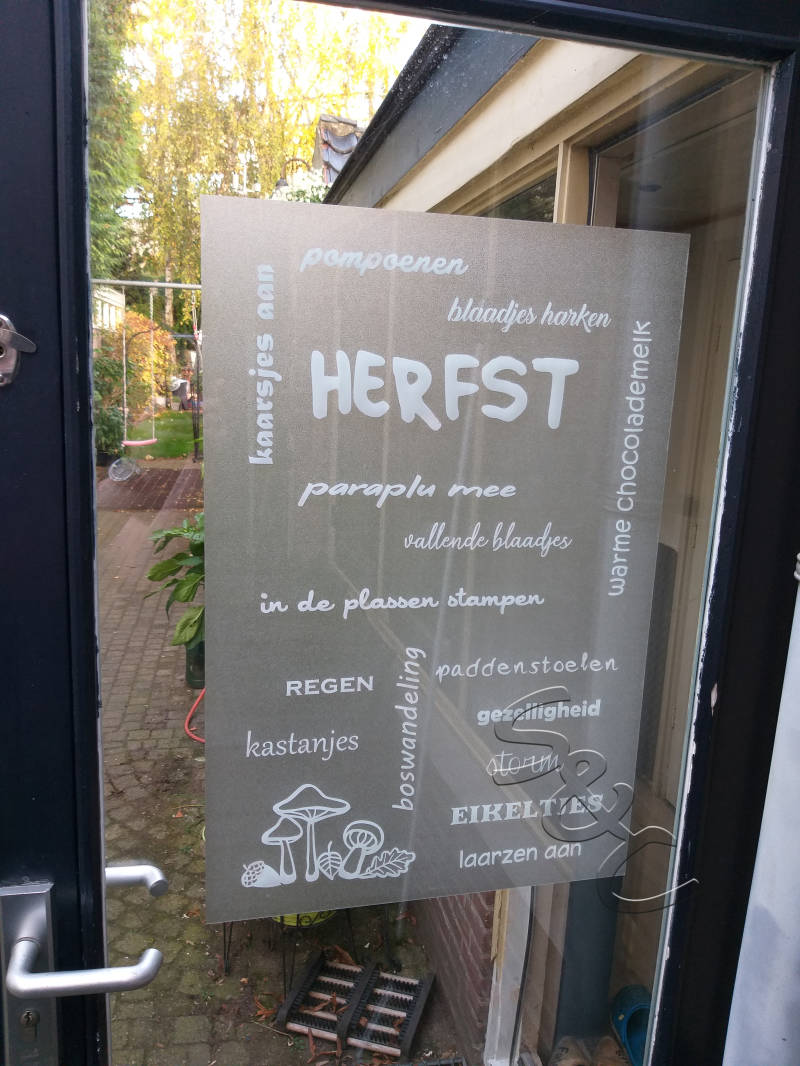 pompoenen
kaarsjes aan
blaadjes harken
HERFST
warme chocolademelk
paraplu mee
vallende blaadjes
in de plassen stampen
paddenstoelen
boswandeling
REGEN
gezelligheid
kastanjes
storm
EIKELTJES
laarzen aan
S&C